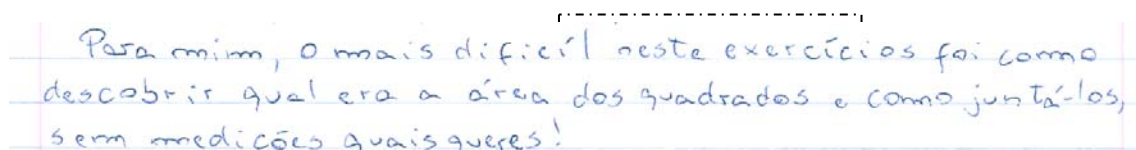 Para mim, o mais dificíl neste exercícios foi como
descobrir qual era a área dos quadrados e como juntá-los,
sem medições quaisqueres!